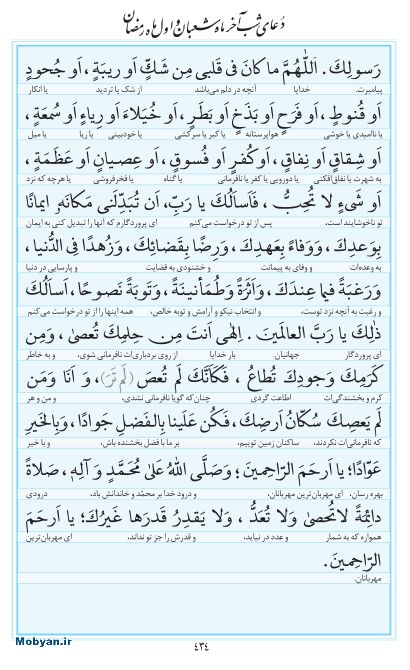 دعای شب آخر ماه شعبان و اول ماه رمضان
رَسولِكَ. اَللّٰهُمَّ ما كانَ فى قَلبى مِن شَكٍّ اَو ريبَةٍ، اَو جُحودٍ
پیامبرت. خدایا آنچه در دلم می‌باشد از شک یا تردید یا انکار
اَو قُنوطٍ، اَو فَرَحٍ اَو بَذَخٍ اَو بَطَرٍ، اَو خُيَلاءَ اَو رِياءٍ اَو سُمعَةٍ،
یا ناامیدی یا خوشی هواپرستانه یا کبر یا سرکشی یا خودبینی یا ریا یا میل
اَو شِقاقٍ اَو نِفاقٍ، اَو كُفرٍ اَو فُسوقٍ، اَو عِصيانٍ اَو عَظَمَةٍ،
به شهرت یا نفاق‌افکنی یا دورویی یا کفر یا نافرمانی یا گناه یا فخرفروشی یا هرچه که نزد
اَو شَىءٍ لا تُحِبُّ، فَاَسأَلُكَ يا رَبِّ، اَن تُبَدِّلَنى مَكانَهٗ ايمانًا
تو ناخوشایند است. پس از تو درخواست می‌کنم ای پروردگارم که آنها را تبدیل کنی به ایمان
بِوَعدِكَ، وَوَفاءً بِعَهدِكَ، وَرِضًا بِقَضائِكَ، وَزُهدًا فِى الدُّنيا،
به وعده‌ات و وفای به پیمانت و خشنودی به قضایت و پارسایی در دنیا
وَرَغبَةً فيما عِندَكَ، وَاَثَرَةً وَطُمَأنينَةً، وَتَوبَةً نَصوحًا، اَسأَلُكَ
و رغبت به آنچه نزد توست، و انتخاب نیکو و آرامش و توبه خالص، همه اینها را از تو درخواست می‌کنم
ذٰلِكَ يا رَبَّ العالَمينَ. اِلٰهى اَنتَ مِن حِلمِكَ تُعصىٰ، وَمِن
ای پروردگار جهانیان. بار خدایا از روی بردباری‌ات نافرمانی شوی، و به خاطر
كَرَمِكَ وَجودِكَ تُطاعُ، فَكَاَنَّكَ لَم تُعصَ (لَم تَرَ)، وَ اَنَا وَمَن
کرم و بخشندگی‌ات اطاعت گردی چنان‌که گویا نافرمانی نشدی، و من و هر
لَم يَعصِكَ سُكّانُ اَرضِكَ، فَكُن عَلَينا بِالفَضلِ جَوادًا، وَبِالخَيرِ
که نافرمانی‌ات نکردند، ساکنان زمین توییم، بر ما با فضل بخشنده باش، و با خیر
عَوّادًا؛ يا اَرحَمَ الرّاحِمينَ؛ وَصَلَّى اللهُ عَلىٰ مُحَمَّدٍ وَآلِهٖ، صَلاةً
بهره رسان، ای مهربان‌ترین مهربانان. و درود خدا بر محمّد و خاندانش باد، درودی
دائِمَةً لا تُحصىٰ وَلا تُعَدُّ، وَلا يَقدِرُ قَدرَها غَيرُكَ؛ يا اَرحَمَ
همواره که به شمار و عدد در نیاید، و قدرش را جز تو نداند، ای مهربان‌ترین
الرّاحِمينَ.
مهربانان.
۴۳۴
Mobyan.ir